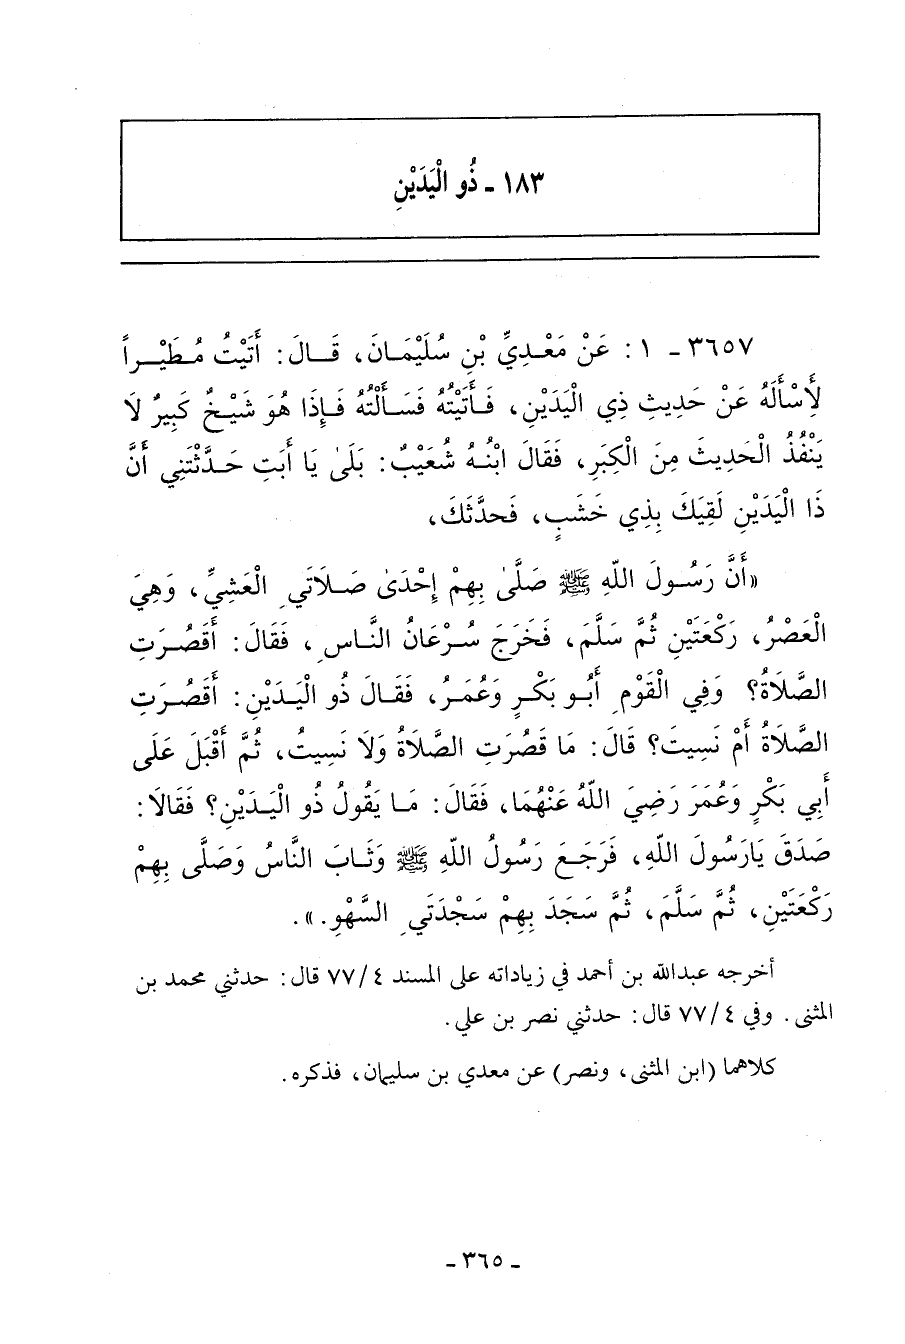 ١٨٣ - ذُو الْيَدَيْنِ
٣٦٥٧ - ١ : عَنْ مَعْدِيِّ بْنِ سُلَيْمَانَ، قَالَ: أَتَيْتُ مُطَيْراً
لِأَسْأَلَهُ عَنْ حَدِيثِ ذِي الْيَدَيْنِ، فَأَتَيْتُهُ فَسَأَلْتُهُ فَإِذَا هُوَ شَيْخٌ كَبِيرٌ لَا
يَنْفُذُ الْحَدِيثَ مِنَ الْكِبَرِ، فَقَالَ ابْنُهُ شُعَيْبٌ: بَلَىٰ يَا أَبَتِ حَدَّثْتَنِي أَنَّ
ذَا الْيَدَيْنِ لَقِيَكَ بِذِي خَشَبٍ، فَحَدَّثَكَ،
«أَنَّ رَسُولَ اللّهِ ﷺ صَلَّىٰ بِهِمْ إِحْدَىٰ صَلَاتَيِ الْعَشِيِّ، وَهِيَ
الْعَصْرُ، رَكْعَتَيْنِ ثُمَّ سَلَّمَ، فَخَرَجَ سُرْعَانُ النَّاسِ، فَقَالَ: أَقَصُرَتِ
الصَّلَاةُ؟ وَفِي الْقَوْمِ أَبُو بَكْرٍ وَعُمَرُ، فَقَالَ ذُو الْيَدَيْنِ: أَقَصُرَتِ
الصَّلَاةُ أَمْ نَسِيتَ؟ قَالَ: مَا قَصُرَتِ الصَّلَاةُ وَلَا نَسِيتُ، ثُمَّ أَقْبَلَ عَلَى
أَبِي بَكْرٍ وَعُمَرَ رَضِيَ اللّهُ عَنْهُمَا، فَقَالَ: مَا يَقُولُ ذُو الْيَدَيْنِ؟ فَقَالَا:
صَدَقَ يَارَسُولَ اللّهِ، فَرَجَعَ رَسُولُ اللّهِ ﷺ وَثَابَ النَّاسُ وَصَلَّى بِهِمْ
رَكْعَتَيْنِ، ثُمَّ سَلَّمَ، ثُمَّ سَجَدَ بِهِمْ سَجْدَتَيِ السَّهْوِ.».
أخرجه عبدالله بن أحمد في زياداته على المسند ٤/ ٧٧ قال: حدثني محمد بن
المثنى. وفي ٤/ ٧٧ قال: حدثني نصر بن علي.
كلاهما (ابن المثنى، ونصر) عن معدي بن سليمان، فذكره.
- ٣٦٥ -